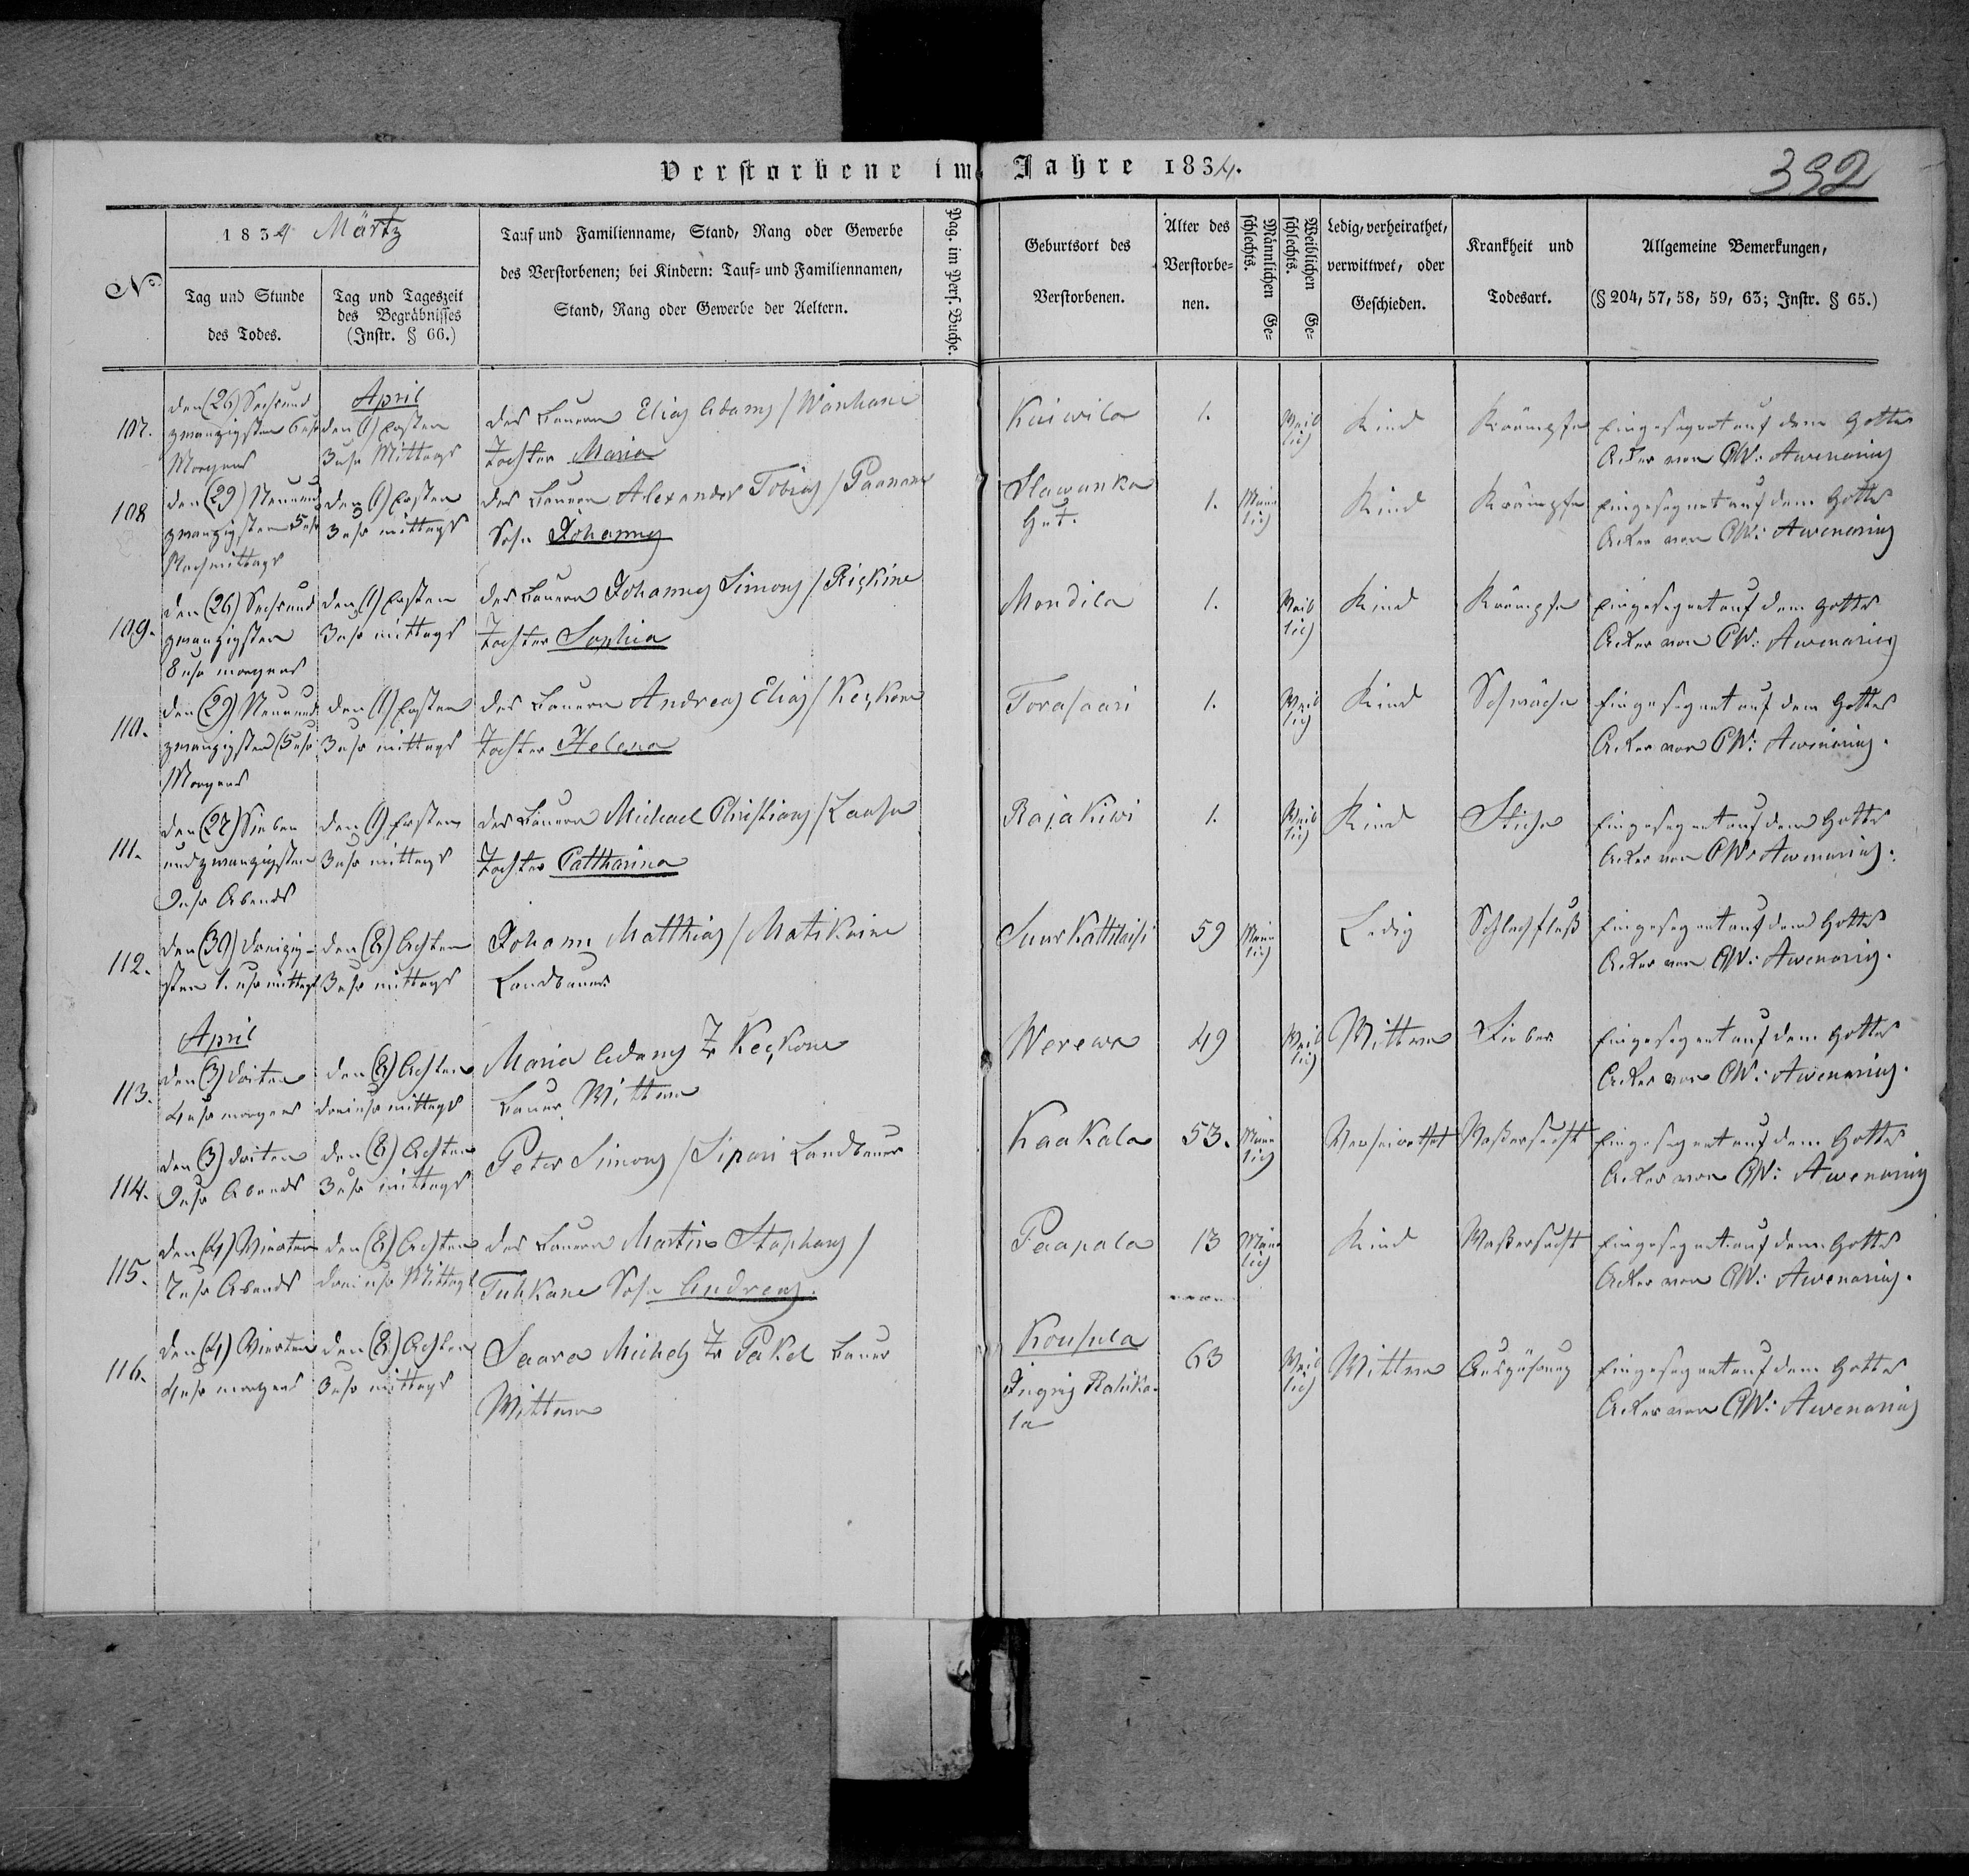 Verstorbene im Jahre 1834.
392
1834 Märtz
No
Tag und Stunde
des Todes.
Tag und Tageszeit
des Begräbnisses
(Instr. § 66.)
Tauf und Familienname, Stand, Rang oder Gewerbe
des Verstorbenen; bei Kindern: Tauf- und Familiennamen,
Stand, Rang oder Gewerbe der Aeltern.
Pag. im Pers. Buche.
Geburtsort des
Verstorbenen.
Alter des
Verstorbe-
nen.
Männlichen Ge-
schlechts.
Weiblichen Ge-
schlechts.
Ledig, verheirathet,
verwittwet, oder
Geschieden.
Krankheit und
Todesart.
Allgemeine Bemerkungen,
(§ 204, 57, 58, 59, 63; Instr. § 65.)
107.
den (26) Sechsund
zwanzigsten 6 uhr
Morgens
April
den (1) Ersten
3 uhr Mittags
des Bauern Elias Adams / Wanhane
Tochter Maria
Kuiwila
1.
Weib
lich
Kind
Krämpfe
Eingesegnet auf dem Gottes
Acker von CW: Awenarius
108
den (29) Neunund
zwanzigsten 5 uhr
Nachmittags
den (1) Ersten
3 uhr mittags
des Bauern Alexander Tobias / Paanane
Sohn Johannes
Slawanka
Gut.
1.
Männ
lich
Kind
Krämpfe
Eingesegnet auf dem Gottes
Acker von CW: Awenarius
109.
den (26) Sechsund
zwanzigsten
8 uhr morgens
den (1) Ersten
3 uhr mittags
des Bauern Johannes Simons / Riskine
Tochter Sophia
Mondila
1.
Weib
lich
Kind
Krämpfe
Eingesegnet auf dem Gottes
Acker von CW: Awenarius
110.
den (29) Neunund
zwanzigsten 5 uhr
Morgens
den (1) Ersten
3 uhr mittags
des Bauern Andreas Elias / Keskone
Tochter Helena
Torasaari
1.
Weib
lich
Kind
Schwäche
Eingesegnet auf dem Gottes
Acker von CW: Awenarius.
111.
den (27) Sieben
undzwanzigsten
9 uhr Abends
den (1) Ersten
3 uhr mittags
des Bauern Michael Christians /
Tochter Cattharina
Rajakiwi
1.
Weib
lich
Kind
Stiche
Eingesegnet auf dem Gottes
Acker von CW: Awenarius.
112.
den (30) dreizig-
sten 1. uhr mittags
den (8) Achten
3 uhr mittags
Johann Matthias / Matikaine
Landbauer
59
Männ
lich
Ledig
Schlagfluß
Eingesegnet auf dem Gottes
Acker von CW: Awenarius.
April
113.
den (3) driten
4 uhr morgens
den (8) Achten
drei uhr mittags
Maria Adams Tr Keskone
Bauer Wittwe
Werewa
49
Weib
lich
Wittwe
Fieber
Eingesegnet auf dem Gottes
Acker von CW: Awenarius.
114.
den (3) driten
9 uhr Abends
den (8) Achten
3 uhr mittags
Peter Simons / Sipari Landbauer
Kaakala
53.
Männ
lich
Verheirathet
Waßersucht
Eingesegnet auf dem Gottes
Acker von CW: Awenarius
115.
den (4) Vierten
7 uhr Abends
den (8) Achten
drei uhr Mittags
des Bauern Martin Stephans /
Tuhkane Sohn Andreas.
Paapala
13
Männ
lich
Kind
Waßersucht
Eingesegnet auf dem Gottes
Acker von CW: Awenarius.
116.
den (4) Vierten
4 uhr morgens
den (8) Achten
3 uhr mittags
Saara Michels Tr Pakel Bauer
Wittwe
63
Weib
lich
Wittwe
Auszehrung
Eingesegnet auf dem Gottes
Acker von CW: Awenarius